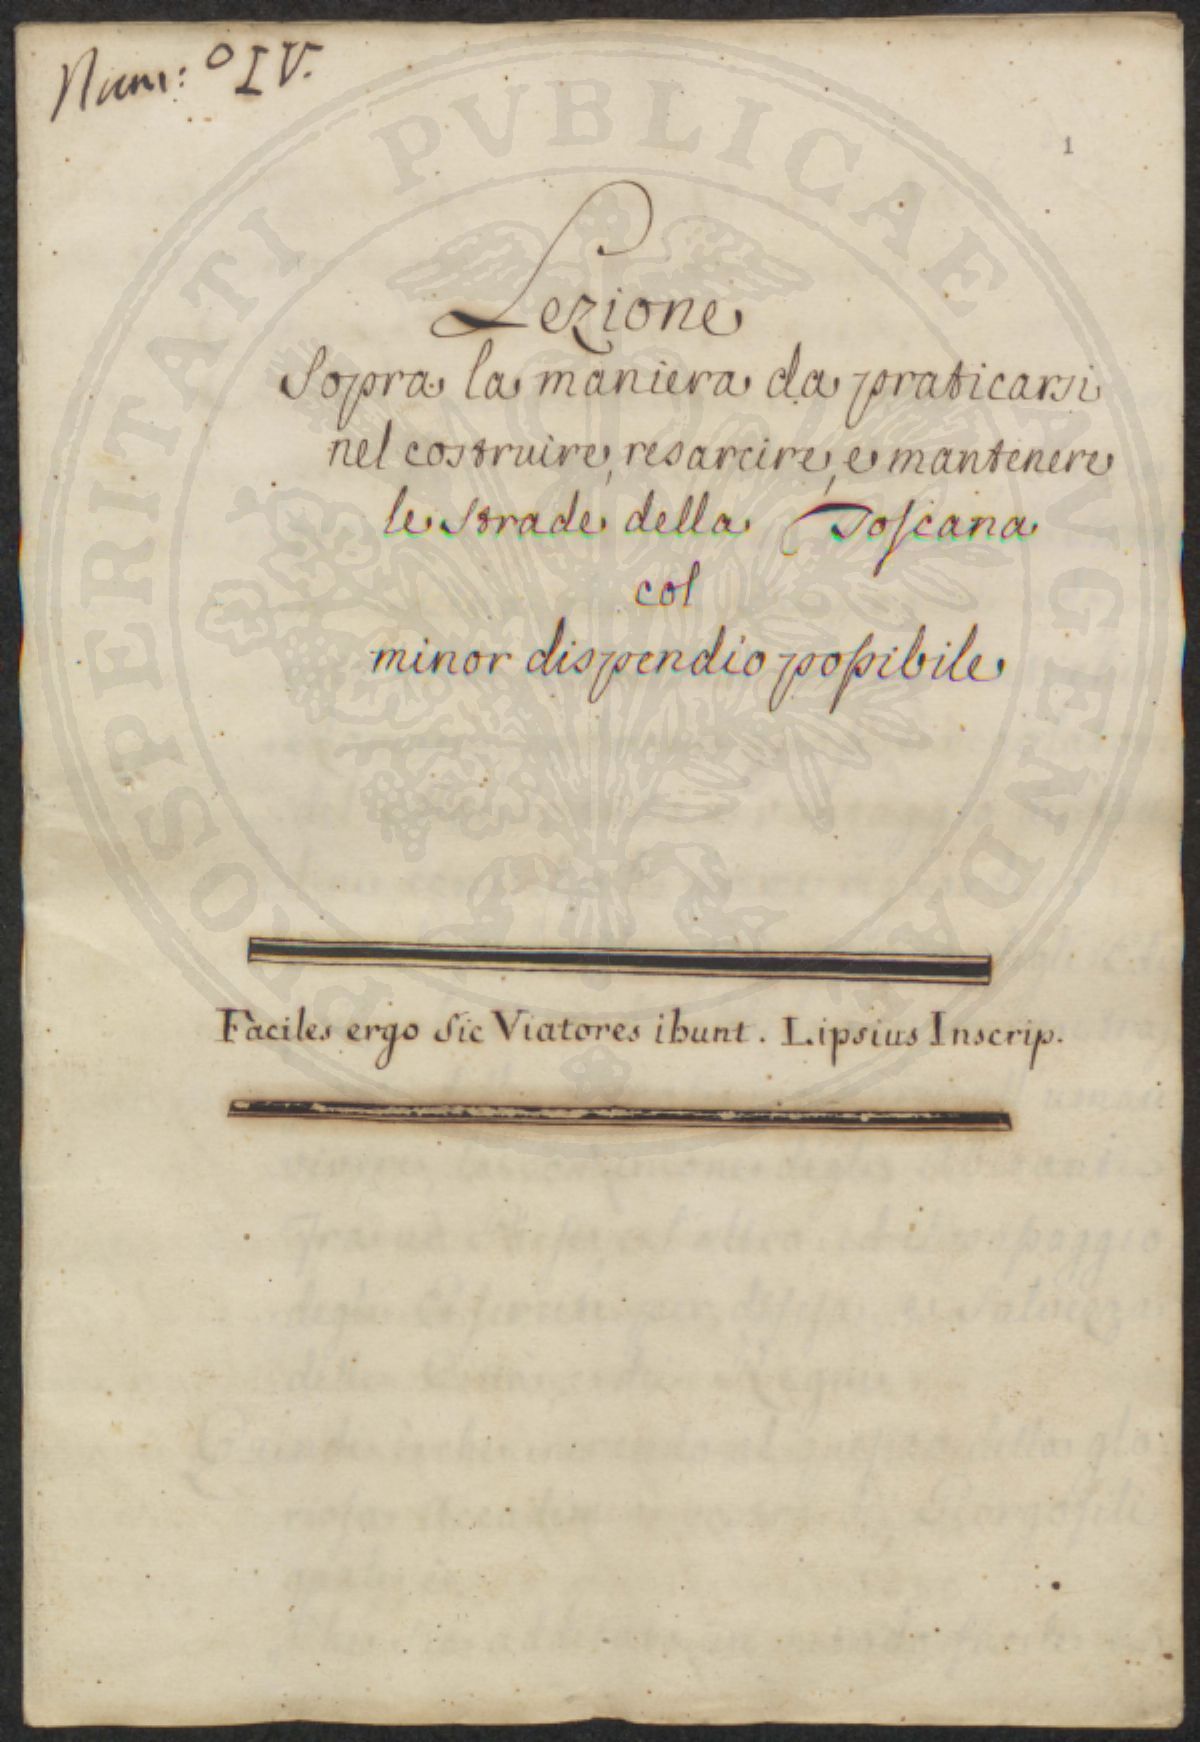 Num:º IV.
1
Lezione
Sopra la maniera da praticarsi
nel costruire, resarcire, e mantenere
le strade della Toscana
col
minor dispendio poſsibile
Faciles ergo sic Viatores ibunt. Lipsius Inscrip.
PROSPERITATI PVBLICAE AVGENDAE